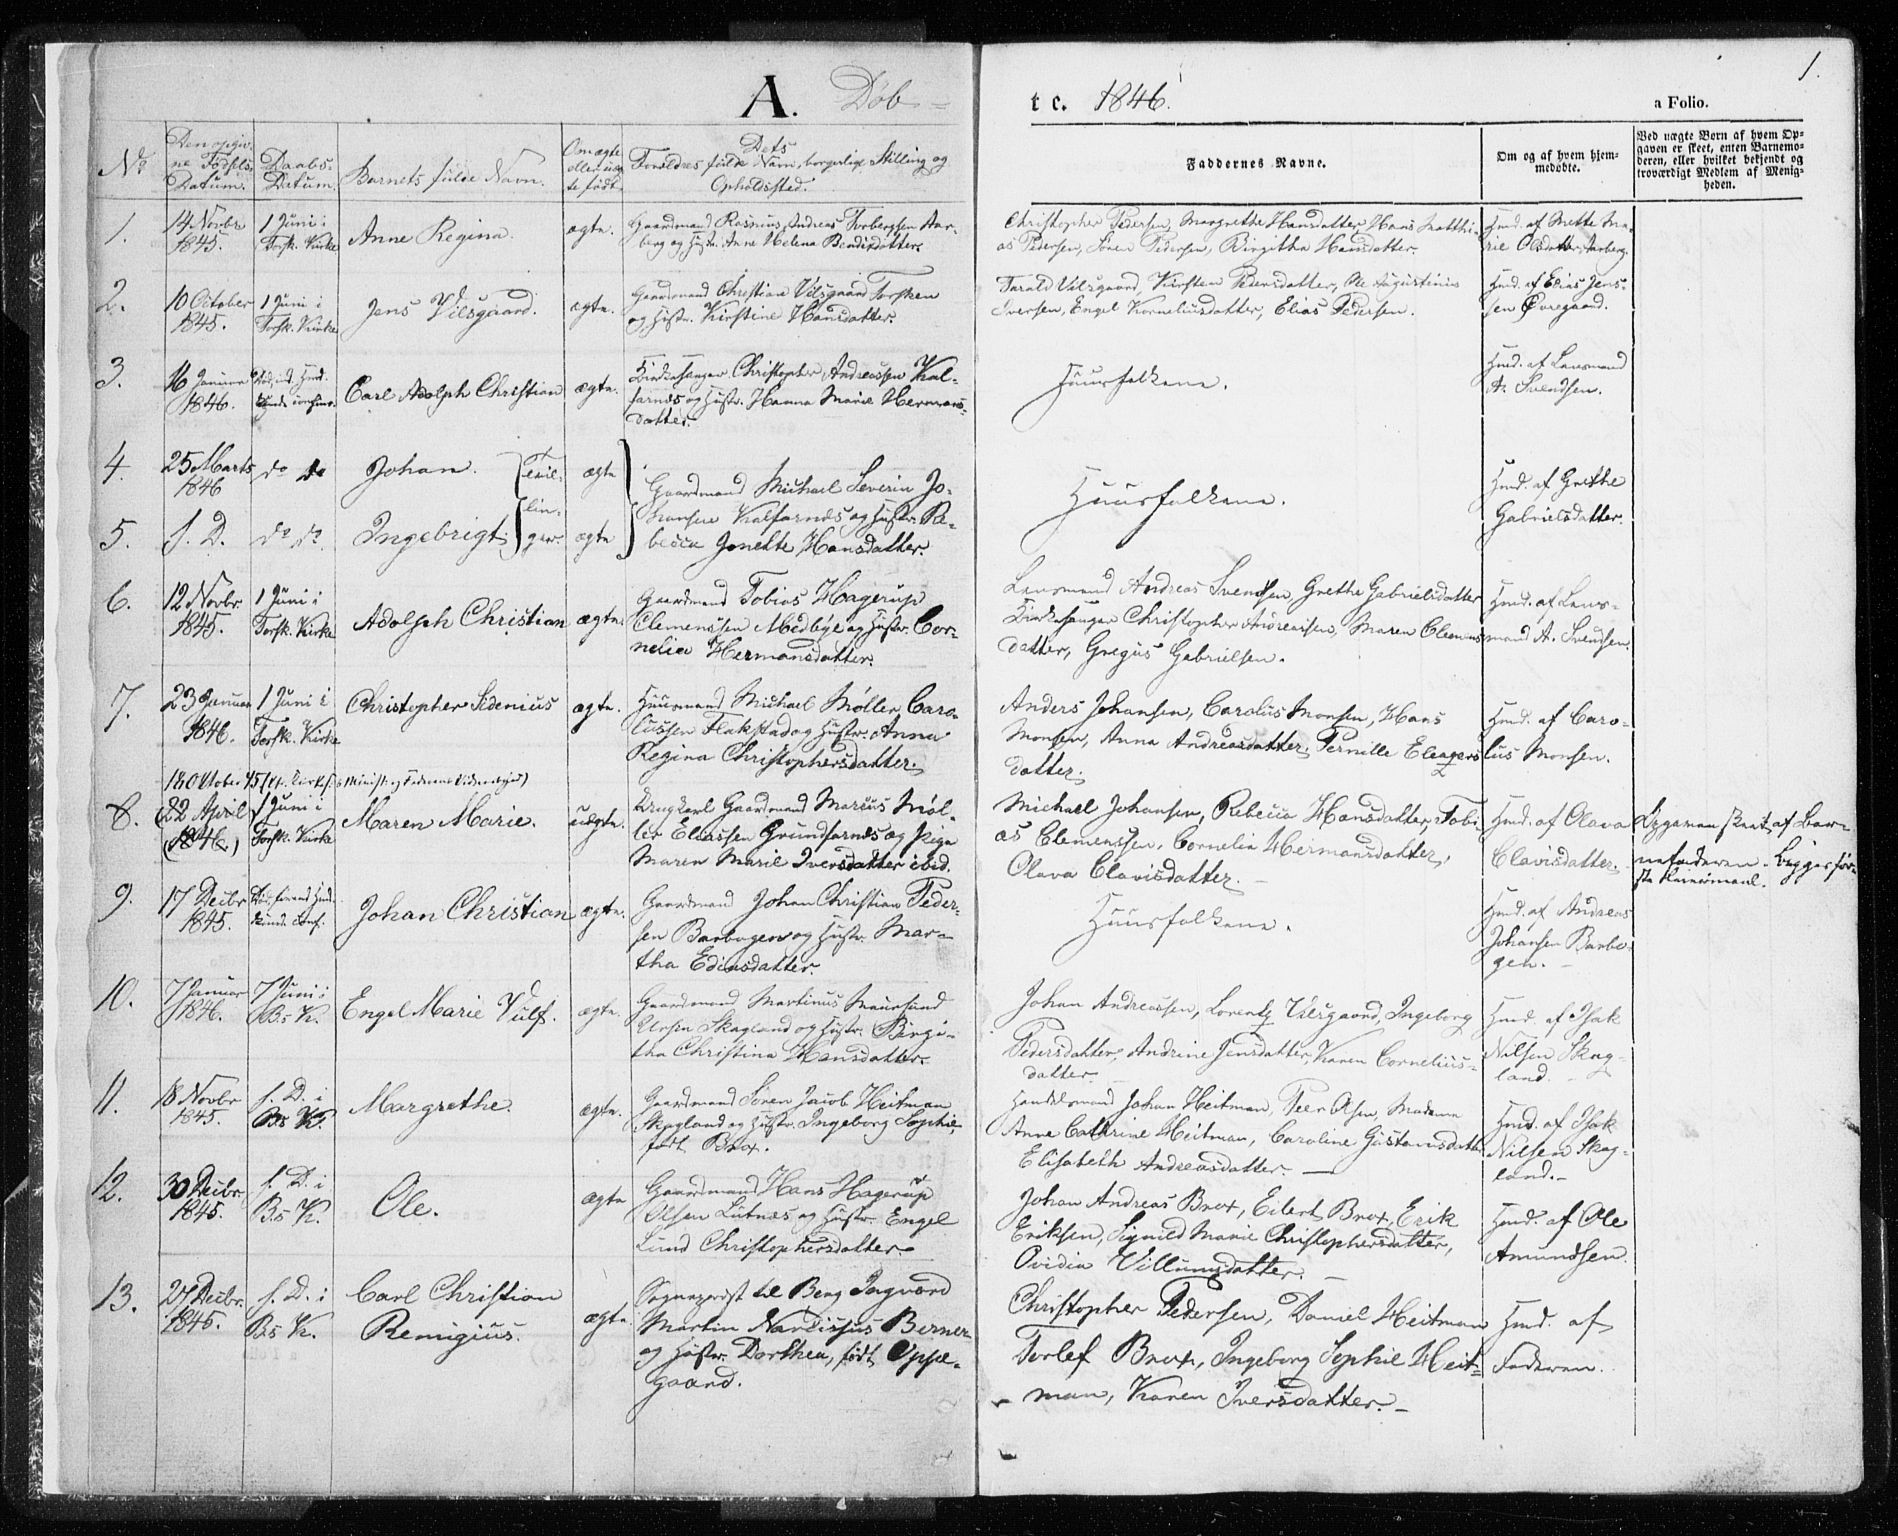 1.
A. Døb=
t c. 1846.
a Folio.
No
Den opgiv-
ne Fødsels
Datum.
Daabs-
Datum.
Barnets fulde Navn.
Om ægte
eller uæg-
te født.
Dets
Forældres fulde Navn, borgerlige Stilling og
Opholdssted.
Faddernes Navne.
Om og af hvem hjem-
medøbte.
Ved uægte Børn af hvem Op-
gaven er skeet, enten Barnemo-
deren, eller hvilket bekjendt og
troværdigt Medlem af Menig-
heden.
1.
14 Novbr
1845.
1 Juni i
Torsk. Kirke
Anne Regina.
ægte.
Gaardmand Rasmus Andreas Torbergsen Aar-
berg og Hustr. Anne Helena Bendixdatter.
Christopher Pedersen, Margrethe Hansdatter, Hans Matthi-
as Pedersen, Søren Pedersen, Birgitha Hansdatter.
Hmd. af Mette Ma-
rie Olsdatter, Aarberg.
2.
10 October
1845.
1 Juni i
Torsk. Kirke
Jens Vilsgaard.
ægte.
Gaardmand Christian Vilsgaard Torsken
og Hustr. Kirstine Hansdatter.
Tarald Vilsgaard, Kirsten Pedersdatter, Ole Augustinus
Iversen, Engel Korneliusdatter, Elias Pedersen.
Hmd. af Elias Jens-
sen Øvregaard.
3.
16 Januar
1846.
Død, ind. Hmd.
kunde confirm.
Carl Adolph Christian
ægte.
Kirkesanger Christopher Andreassen Kal-
farnes og Hustr. Hanna Marie Hermans-
datter.
Huusfolkene.
Hmd. af Lensmand
A. Svendsen.
4.
25 Marts
1846
do do
Johan.
Tvil-
ægte
Gaardmand Michael Severin Jo-
5.
s. D.
do do.
Ingebrigt
lin-
ger.
ægte
hansen Kalfarnes og Hustr. Re-
becca Jonette Hansdatter.
Huusfolkene.
Hmd. af Grethe
Gabrielsdatter.
6.
12 Novbr.
1845.
1 Juni i
Torsk. Kirke
Adolph Christian
ægte.
Gaardmand Tobias Hagerup
Clemenssen Medbye og Hustr. Cor-
nelia Hermansdatter.
Lensmand Andreas Svendsen, Grethe Gabrielsdatter
Kirkesanger Christopher Andreassen, Maren Clemens
datter, Gregus Gabrielsen.
Hmd. af Lens-
mand A. Svendsen.
7.
23 Januar
1846.
1 Juni i
Torsk. Kirke
Christopher Sidenius
ægte.
Huusmand Michael Møller Caro-
lussen Flakstad og Hustr. Anna
Regina Christophersdatter.
Anders Johansen, Carolus Monsen, Hans
Monsen, Anna Andreasdatter, Pernille Eleazers
datter.
Hmd. af Caro-
lus Monsen.
18 October 45
8.
(22 April
1846.)
1 Juni i
Torsk. Kirke
Maren Marie.
uægte.
Ungkarl Gaardmand Marcus Møl-
ler Eliassen Grundfarnes og Pige
Maren Marie Iversdatter ibid.
Michael Johansen, Rebecca Hansdatter, Tobi
as Clemenssen, Cornelia Hermansdatter,
Olava Clavisdatter.
Hmd. af Olava
Clavisdatter.
Opgaven skeet af Bar-
nefaderen. Begges før-
ste Leiermaal.
9.
17 Decbr
1845.
Død, forend Hmd.
kunde conf.
Johan Christian
ægte.
Gaardmand Johan Christian Peder-
sen Barbogen og Hustr. Mar-
tha Ediasdatter.
Huusfolkene.
Hmd. af Andreas
Johansen Barbo-
gen.
10.
7 Januar
1846.
7 Juni i
B.s K.
Engel Marie Vulf.
ægte.
Gaardmand Martinus Maursund
Ulrsen Skagland og Hustr. Birgi-
tha Christina Hansdatter.
Johan Andreassen, Lorentz Vilsgaard, Ingeborg
Pedersdatter, Andrine Jensdatter, Karen Cornelius-
datter.
Hmd. af Isak
Nilsen Skag-
land.
11.
18 Novbr
1845.
s. D. i
B.s K.
Margrethe.
ægte.
Gaardmand Søren Jacob Heitman
Skagland og Hustr. Ingeborg Sophie,
født Brox.
Handelsmand Johan Heitman, Peer Olsen, Madame
Anne Cathrine Heitman, Caroline Gustavsdatter
Elisabeth Andreasdatter.
Hmd. af Isak
Nilsen Skag-
land.
12.
30 Decbr.
1845.
s. D. i
B.s K.
Ole.
ægte
Gaardmand Hans Hagerup
Olsen Lutnæs og Hustr. Engel
Lund Christophersdatter
Johan Andreas Brox, Eilert Brox, Erik
Eriksen, Signild Marie Christophersdatter,
Ovidia Villumsdatter.
Hmd. af Ole
Amundsen.
13.
27 Decbr.
1845.
s. D. i
B.s K.
Carl Christian
Remigius.
ægte.
Sognepræst til Berg Ingvard
Martin Narcissus Berner
og Hustr. Dorthea, født Oppe-
gaard.
Christopher Pedersen, Daniel Heitman
Torlef Brox, Ingeborg Sophie Heit-
man, Karen Iversdatter.
Hmd. af
Faderen.